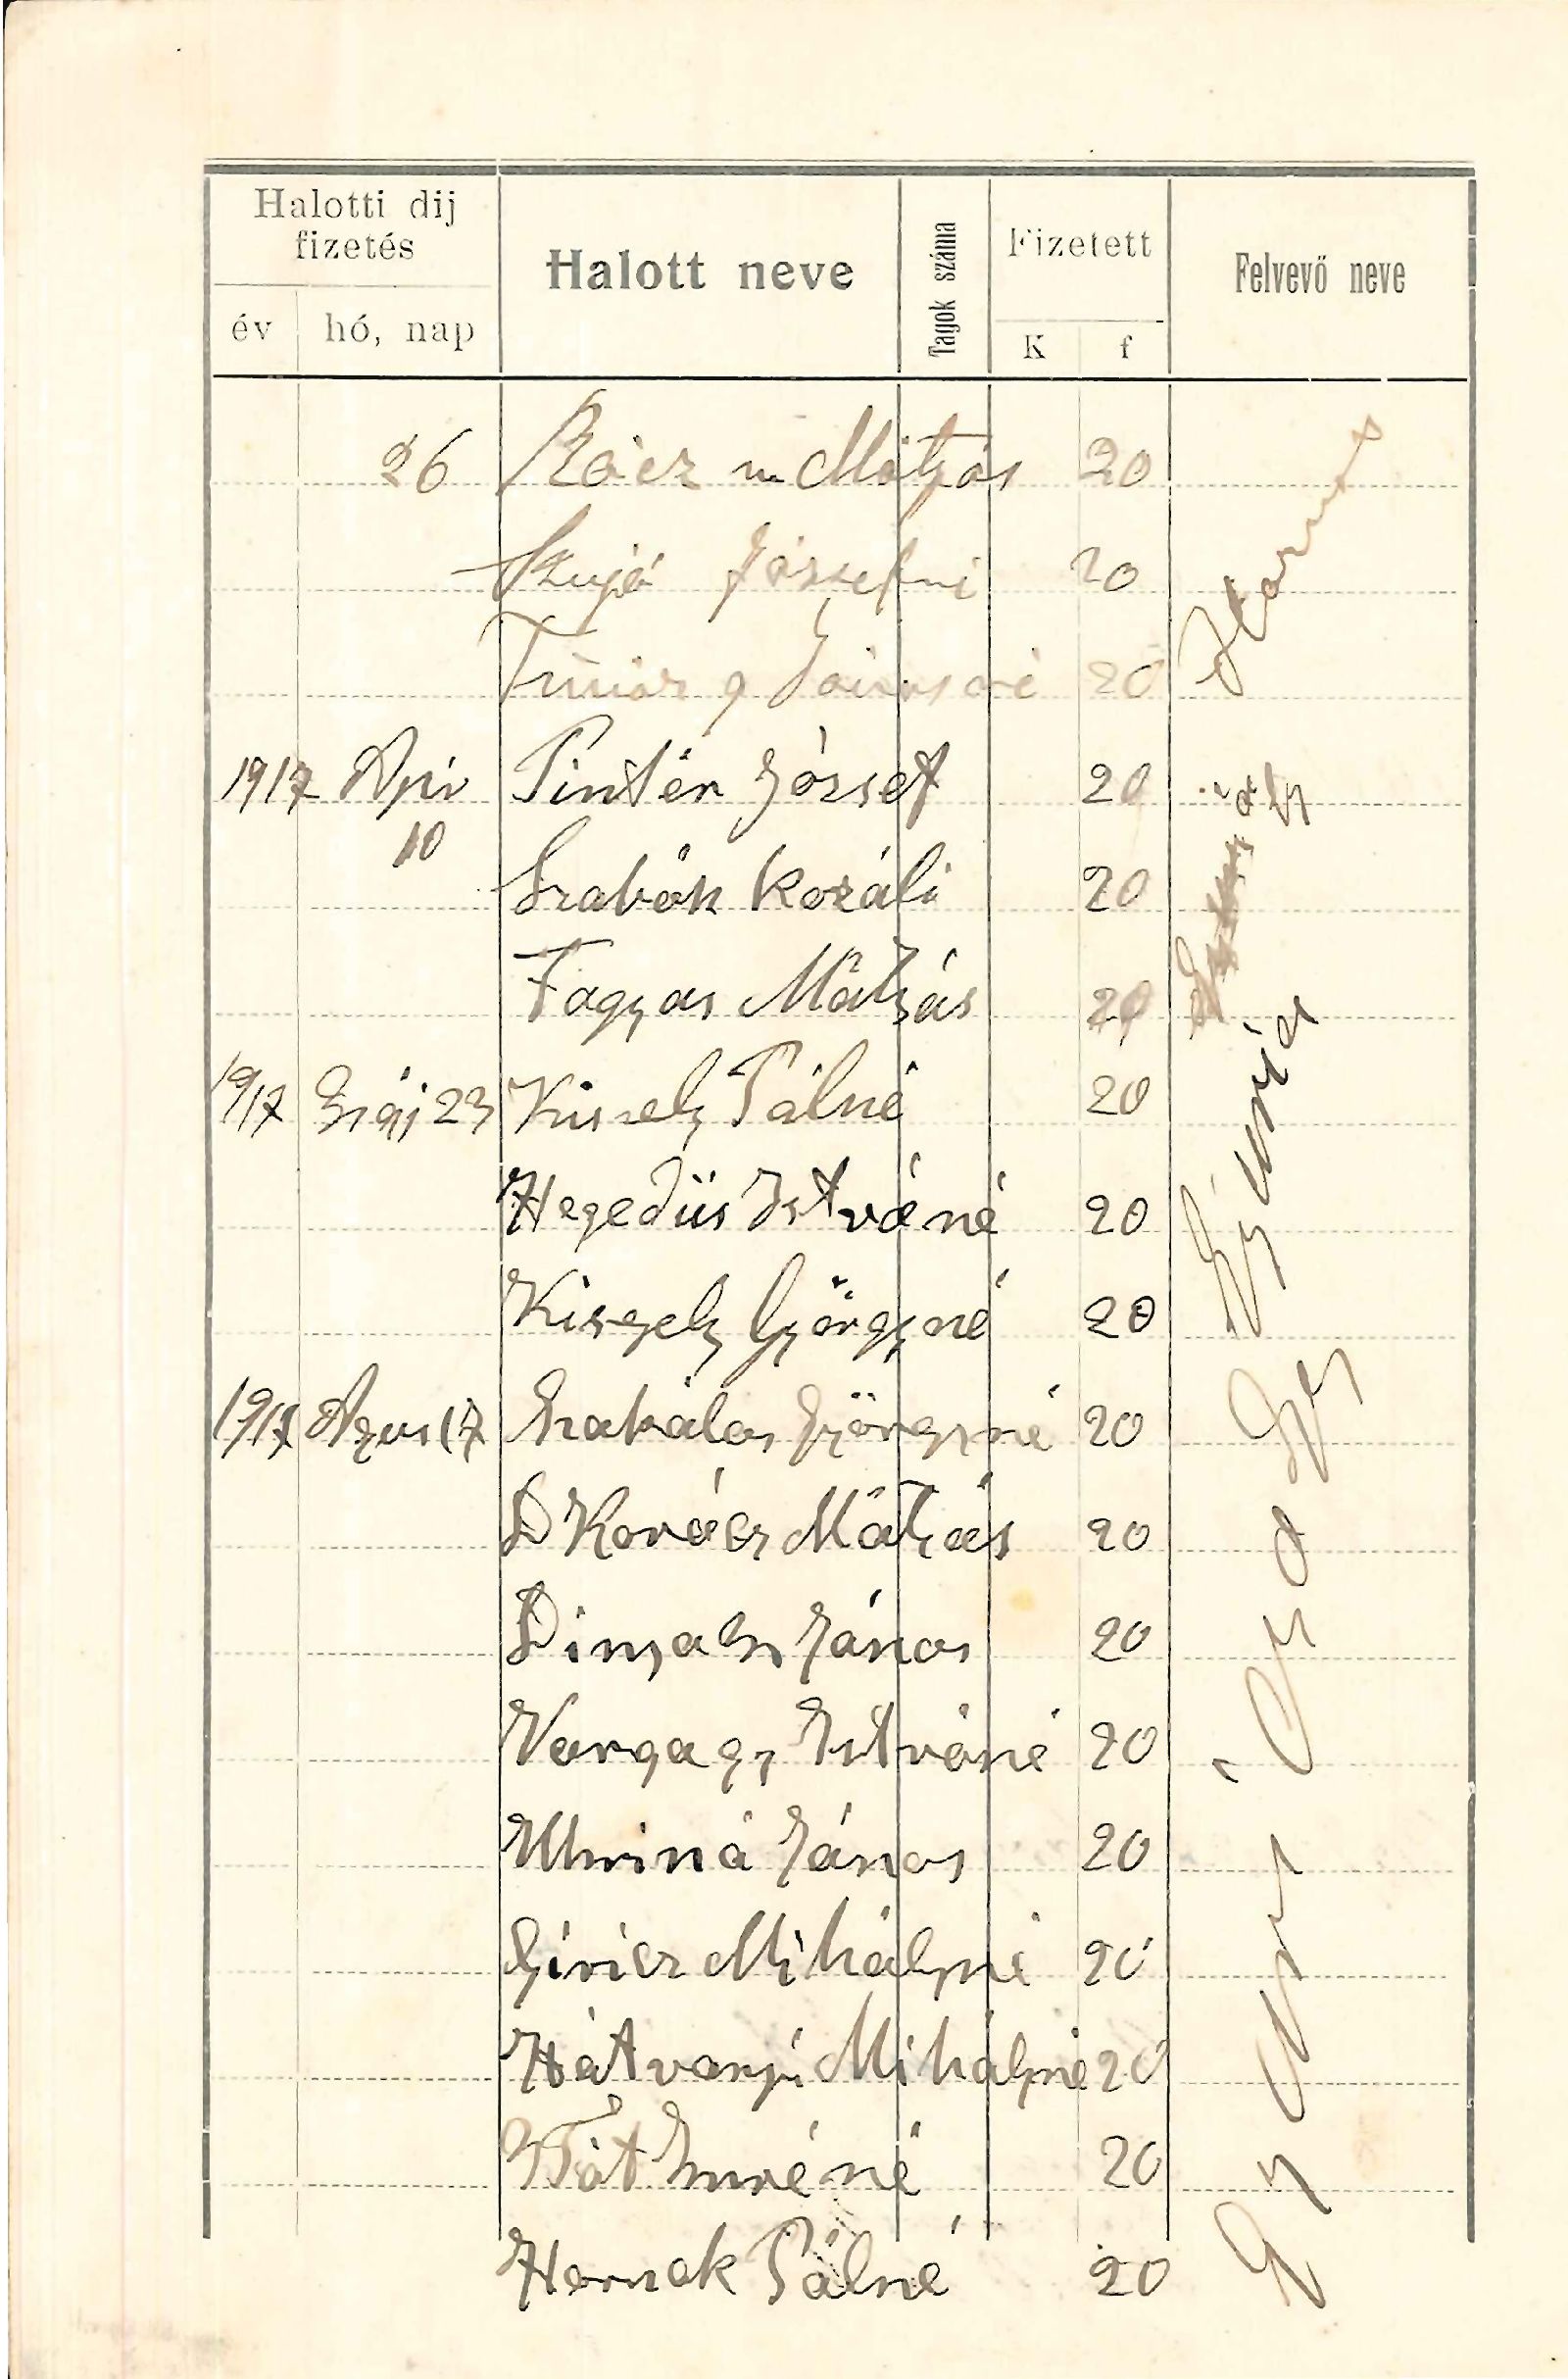 Halotti dij
fizetés
Halott neve
Tagok száma
Fizetett
Felvevő neve
év
hó, nap
K
f
26 Rácz m Mátyás 20
Józsefné 20
20
1917 Apr Pintér József 20
10
Szabók Rozáli 20
Fagyas Mátyás 20
1917 Máj 23 Kiszely Pálné 20
Hegedüs Istváné 20
Kiszely Györgyné 20
1917 Agus 17 Szakálas Györgyné 20
D Kovács Mátyás 20
János 20
Varga gy Istváné 20
Uhriná János 20
Mihályné 20
Hatvanyi Mihályné 20
Tót Imréné 20
Hornok Pálné 20